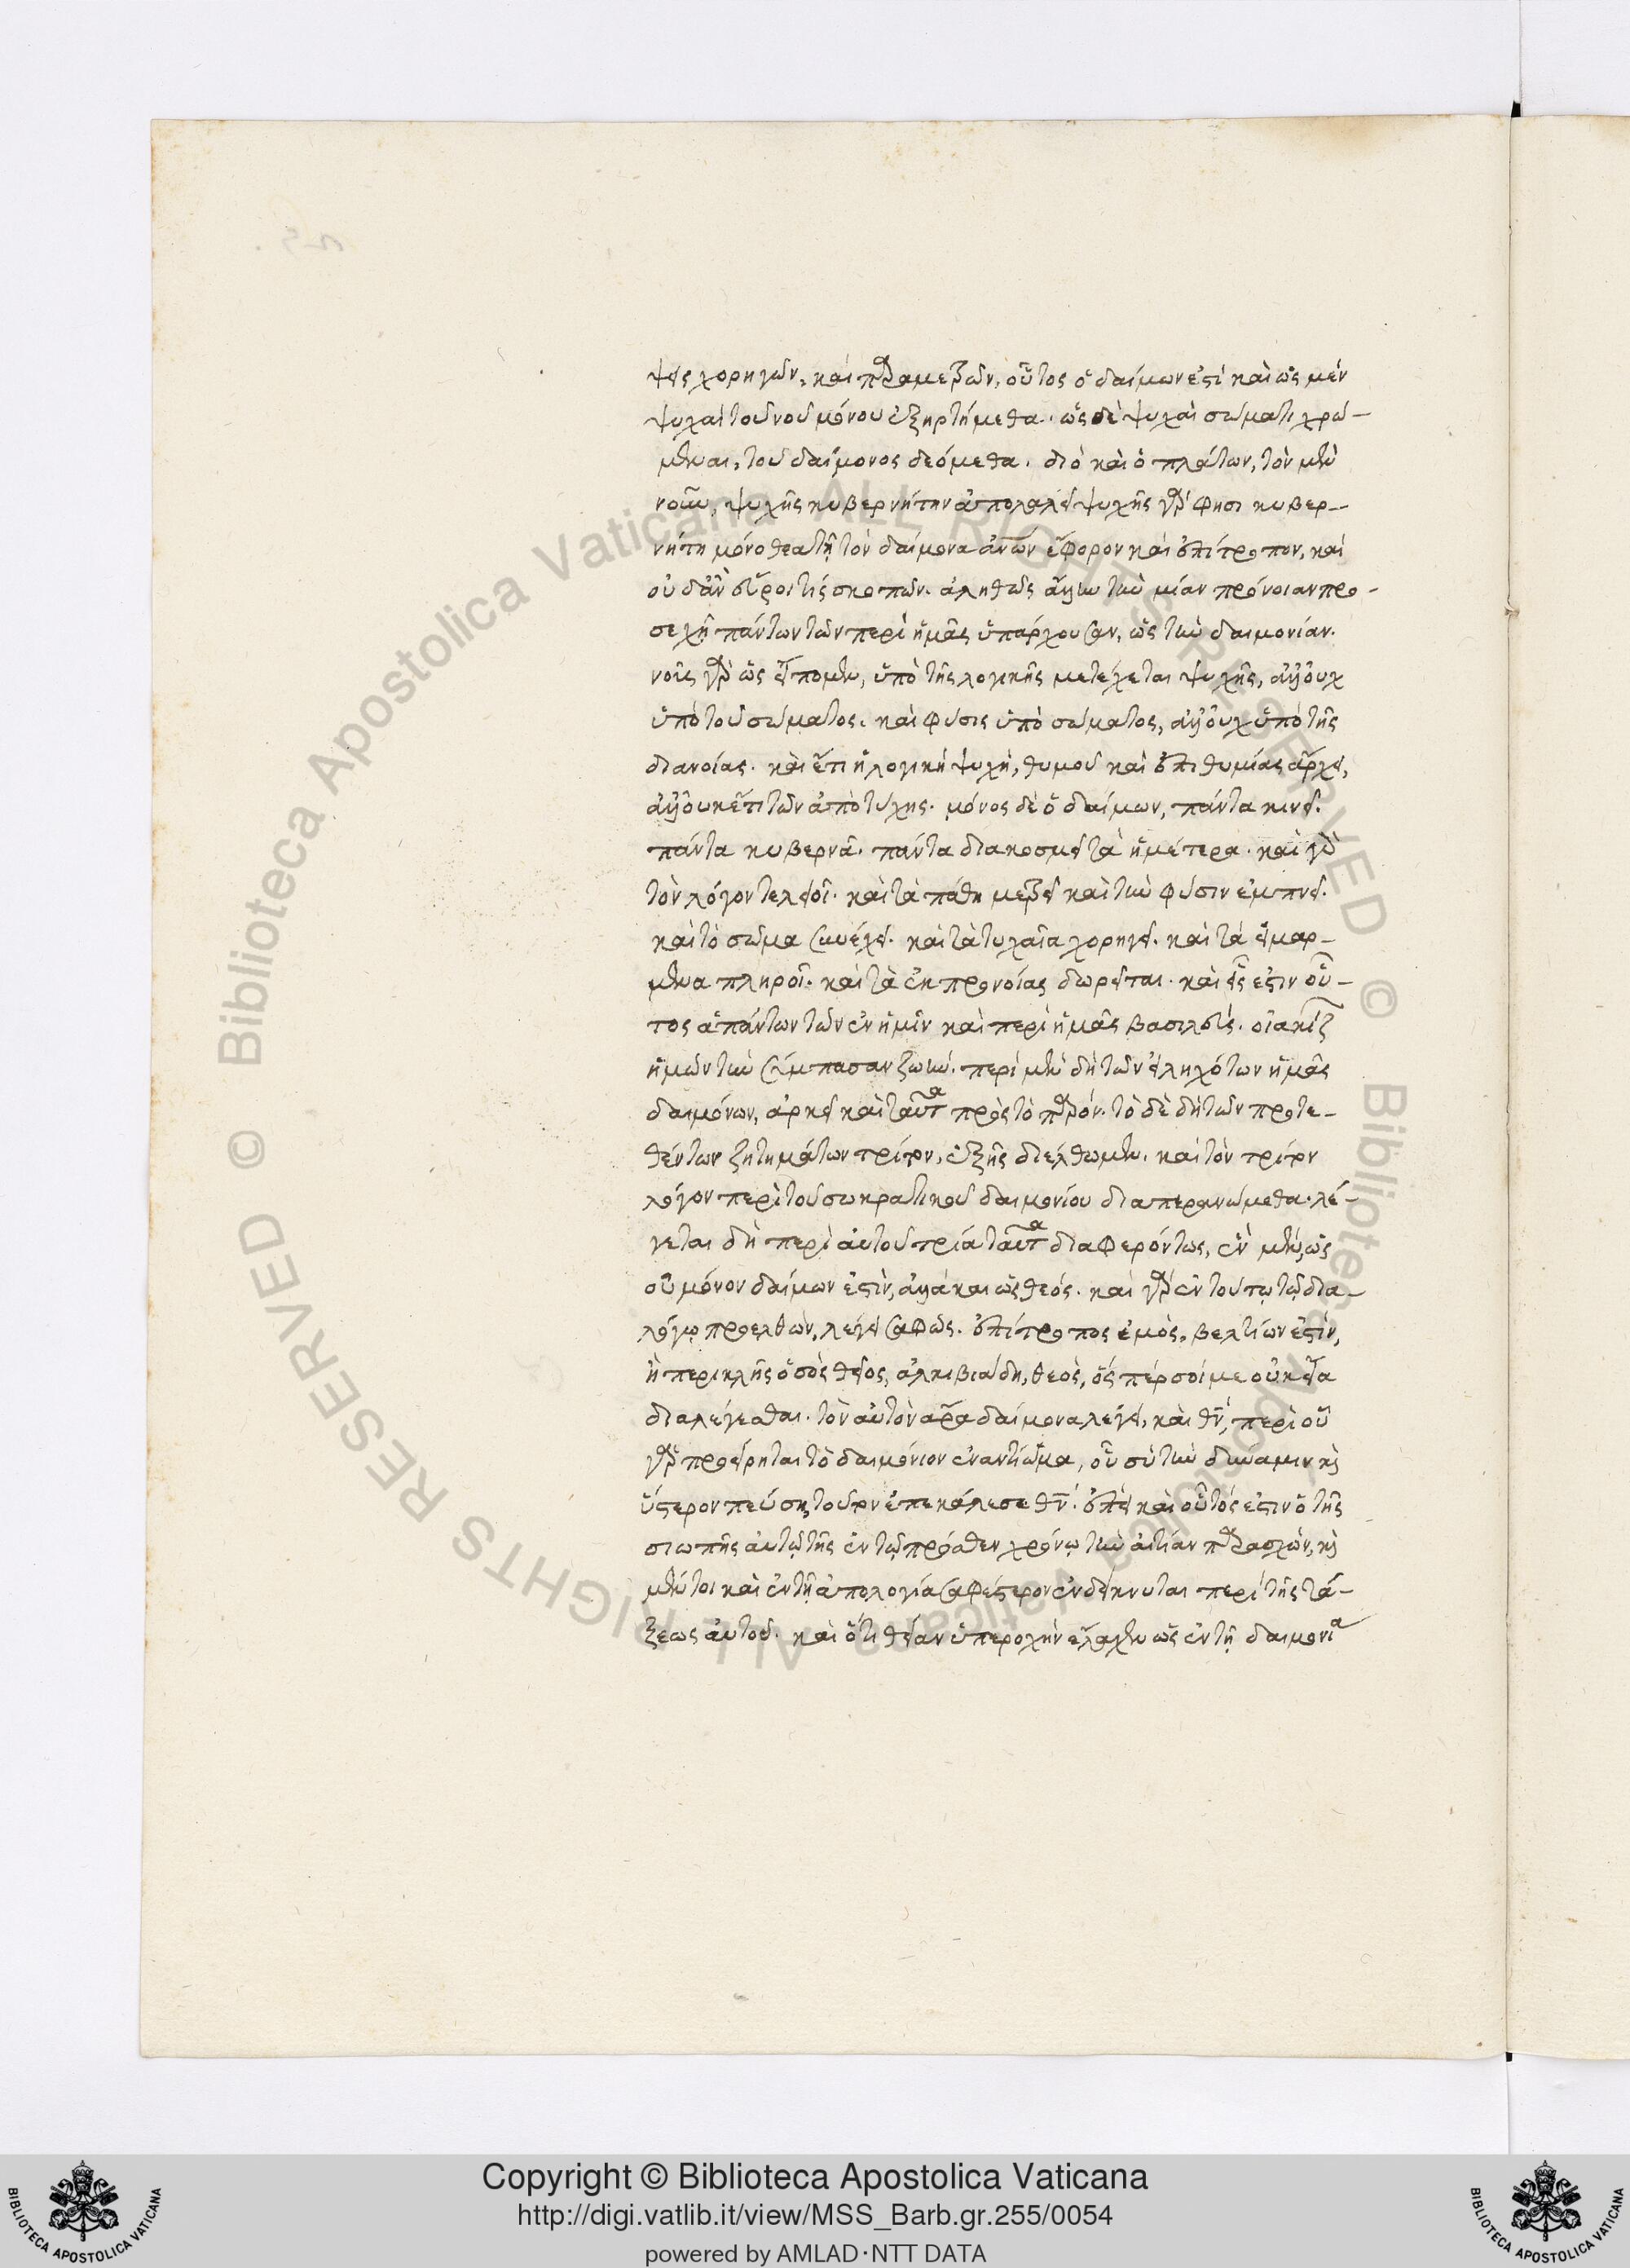 ψεις χορηγῶν, καὶ παραμετρῶν, οὗτος ὁ δαίμων ἐστί καὶ ὡς μὲν
ψυχαὶ τοῦ νοῦ μόνου ἐξηρτήμεθα. ὡς δὲ ψυχαὶ σώματι χρώ-
μεναι, τοῦ δαίμονος δεόμεθα. διὸ καὶ ὁ πλάτων, τὸν μὲν
νοῦν, ψυχῆς κυβερνήτην ἀποκαλεῖ ψυχῆς γάρ φησι κυβερ-
νήτῃ μόνο θεατῇ τὸν δαίμονα ἀνων ἔφορον καὶ ἐπίτροπον, καὶ
οὐδ' ἂν εὕροι τίς σκοπῶν. ἀληθῶς ἄλλην τὴν μίαν πρόνοιαν προ-
σεχῆ πάντων τῶν περὶ ἡμᾶς ὑπάρχουσαν, ὡς τὴν δαιμονίαν.
νοῦς γὰρ ὡς εἴπομεν, ὑπὸ τῆς λογικῆς μετέχεται ψυχῆς, ἀλλ' οὐχ
ὑπὸ τοῦ σώματος. καὶ φύσις ὑπὸ σώματος, ἀλλ' οὐχ ὑπὸ τῆς
διανοίας. καὶ ἔτι ἡ λογικὴ ψυχὴ, θυμοῦ καὶ ἐπιθυμίας ἄρχει,
ἀλλ' οὐκέτι τῶν ἀπὸ τύχης. μόνος δὲ ὁ δαίμων, πάντα κινεῖ.
πάντα κυβερνᾷ. πάντα διακοσμεῖ τὰ ἡμέτερα. καὶ γὰρ
τὸν λόγον τελειοῖ. καὶ τὰ πάθη μετρεῖ καὶ τὴν φύσιν ἐμπνεῖ.
καὶ τὸ σῶμα συνέχει. καὶ τὰ τυχαῖα χορηγεῖ. καὶ τὰ εἱμαρ-
μένα πληροῖ. καὶ τὰ ἐκ προνοίας δωρεῖται. καὶ εἷς ἐστιν οὗ-
τος ἁπάντων τῶν ἐν ἡμῖν καὶ περὶ ἡμᾶς βασιλεύς. οἰακίζ
ἡμῶν τὴν σύμπασαν ζωήν. περὶ μὲν δὴ τῶν εἰληχότων ἡμᾶς
δαιμόνων, ἀρκεῖ καὶ ταῦτα πρὸς τὸ παρόν. τὸ δὲ δὴ τῶν προτε-
θέντων ζητημάτων τρίτον, ἑξῆς διέλθωμεν. καὶ τὸν τρίτον
λόγον περὶ τοῦ σωκρατικοῦ δαιμονίου διαπερανώμεθα. λέ-
γεται δὴ περὶ αὐτοῦ τρία ταῦτα διαφερόντως, ἓν μὲν, ὡς
οὐ μόνον δαίμων ἐστὶν, ἀλλὰ και ὡς θεός. καὶ γὰρ ἐν τούτῳ τῷ δια-
λόγῳ προελθὼν, λέγει σαφῶς. ἐπίτροπος ἐμὸς, βελτίων ἐστὶν,
ἢ περικλῆς ὁ σὸς θεῖος, ἀλκιβιάδη, θεὸς, ὅς πέρ σοί με οὐκ εἴα
διαλέγεσθαι. τὸν αὐτὸν αρα δαίμονα λέγει, καὶ θν, περὶ οὗ
γὰρ προείρηται τὸ δαιμόνιον ἐναντίωμα, οὗ σὺ τὴν δύναμιν καὶ
ὕστερον πεύσῃ, τοῦτον ἐπεκάλεσε θν. ἐπεὶ καὶ οὗτός ἐστιν ὁ τῆς
σιωπῆς αὐτῷ τῆς ἐν τῷ πρόσθεν χρόνῳ τὴν αἰτίαν παρασχὼν, καὶ
μέντοι καὶ ἐν τῇ ἀπολογίᾳ σαφέστερον ἐνδείκνυται περὶ τῆς τά-
ξεως αὐτοῦ. καὶ ὅτι θείαν ὑπεροχὴν εἴληχεν ὡς ἐν τῇ δαιμονίᾳ
Copyright © Biblioteca Apostolica Vaticana
http://digi.vatlib.it/view/MSS_Barb.gr.255/0054
powered by AMLAD·NTT DATA
BIBLIOTECA APOSTOLICA VATICANA
BIBLIOTECA APOSTOLICA VATICANA
© Biblioteca Apostolica Vaticana ALL RIGHTS RESERVED © Biblioteca Apostolica Vaticana ALL RIGHTS RESERVED